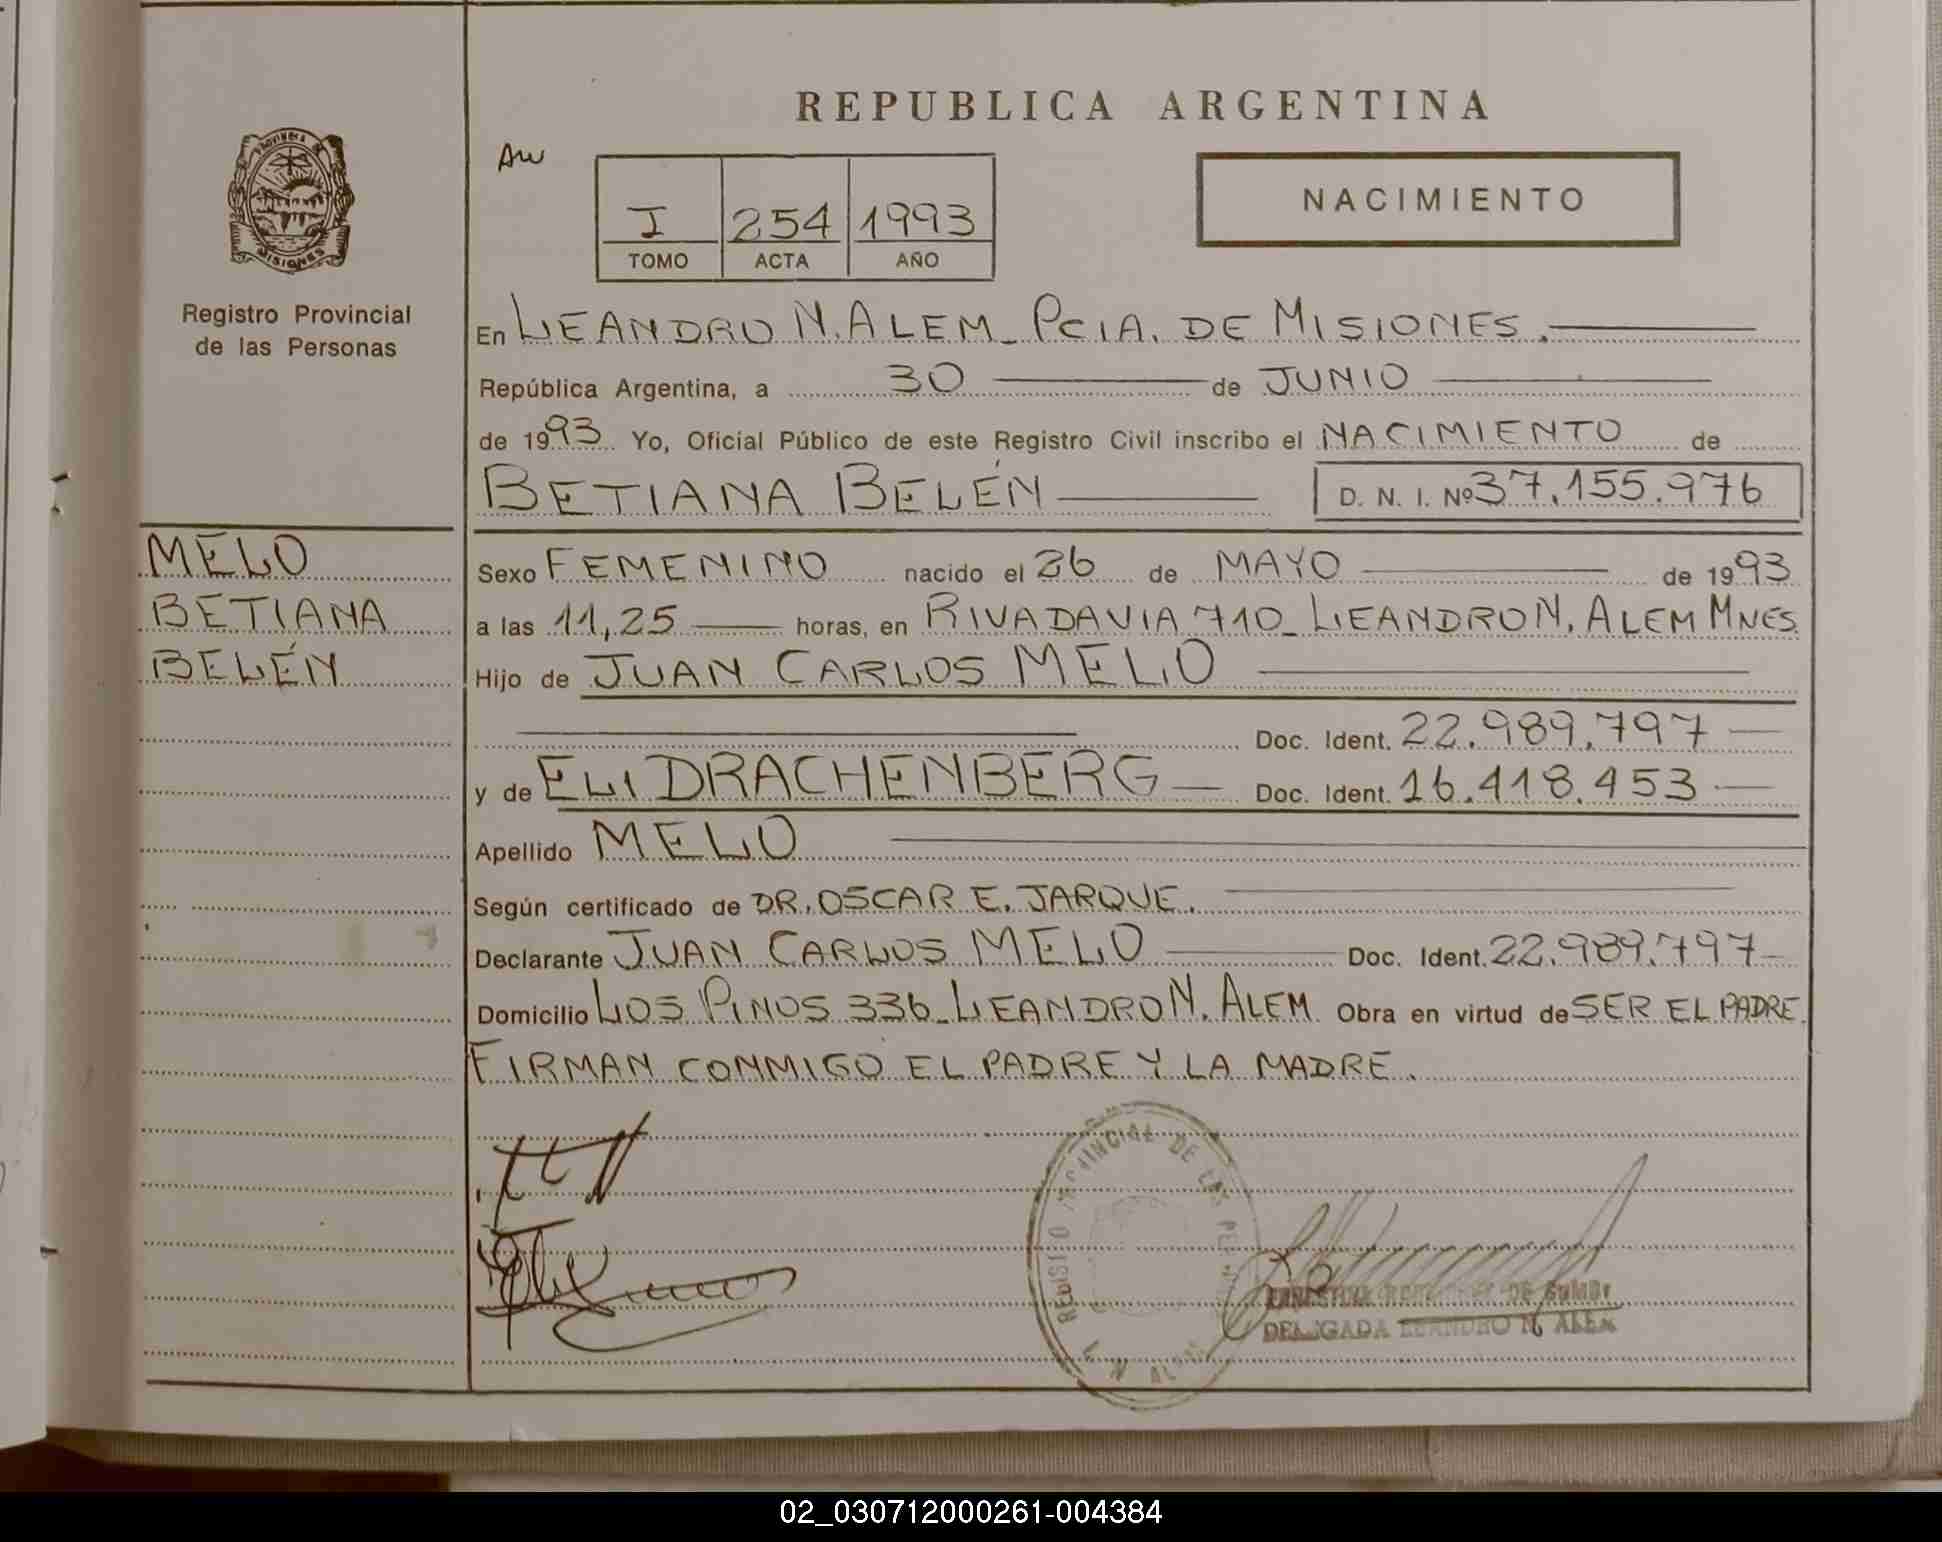 REPUBLICA ARGENTINA
PROVINCIA DE
MISIONES
Registro Provincial
de las Personas
I 254 1993
TOMO ACTA AÑO
NACIMIENTO
En LEANDRO N. ALEM_ PCIA. DE MISIONES.
República Argentina, a 30 de JUNIO
de 1993 Yo, Oficial Público de este Registro Civil inscribo el NACIMIENTO de
BETIANA BELÉN D. N. I. Nº 37.155.976
MELO
BETIANA
BELÉN
Sexo FEMENINO nacido el 26 de MAYO de 1993
a las 11,25 horas, en RIVADAVIA 710_ LEANDRO N. ALEM MNES.
Hijo de JUAN CARLOS MELO
Doc. Ident. 22.989.797
y de ELI DRACHENBERG Doc. Ident. 16.418.453
Apellido MELO
Según certificado de DR. OSCAR E. JARQUE.
Declarante JUAN CARLOS MELO Doc. Ident. 22.989.797
Domicilio LOS PINOS 336_ LEANDRO N. ALEM Obra en virtud de SER EL PADRE.
FIRMAN CONMIGO EL PADRE Y LA MADRE.
REGISTRO PROVINCIAL DE LAS
DELEGADA LEANDRO N. ALEM
02_030712000261-004384